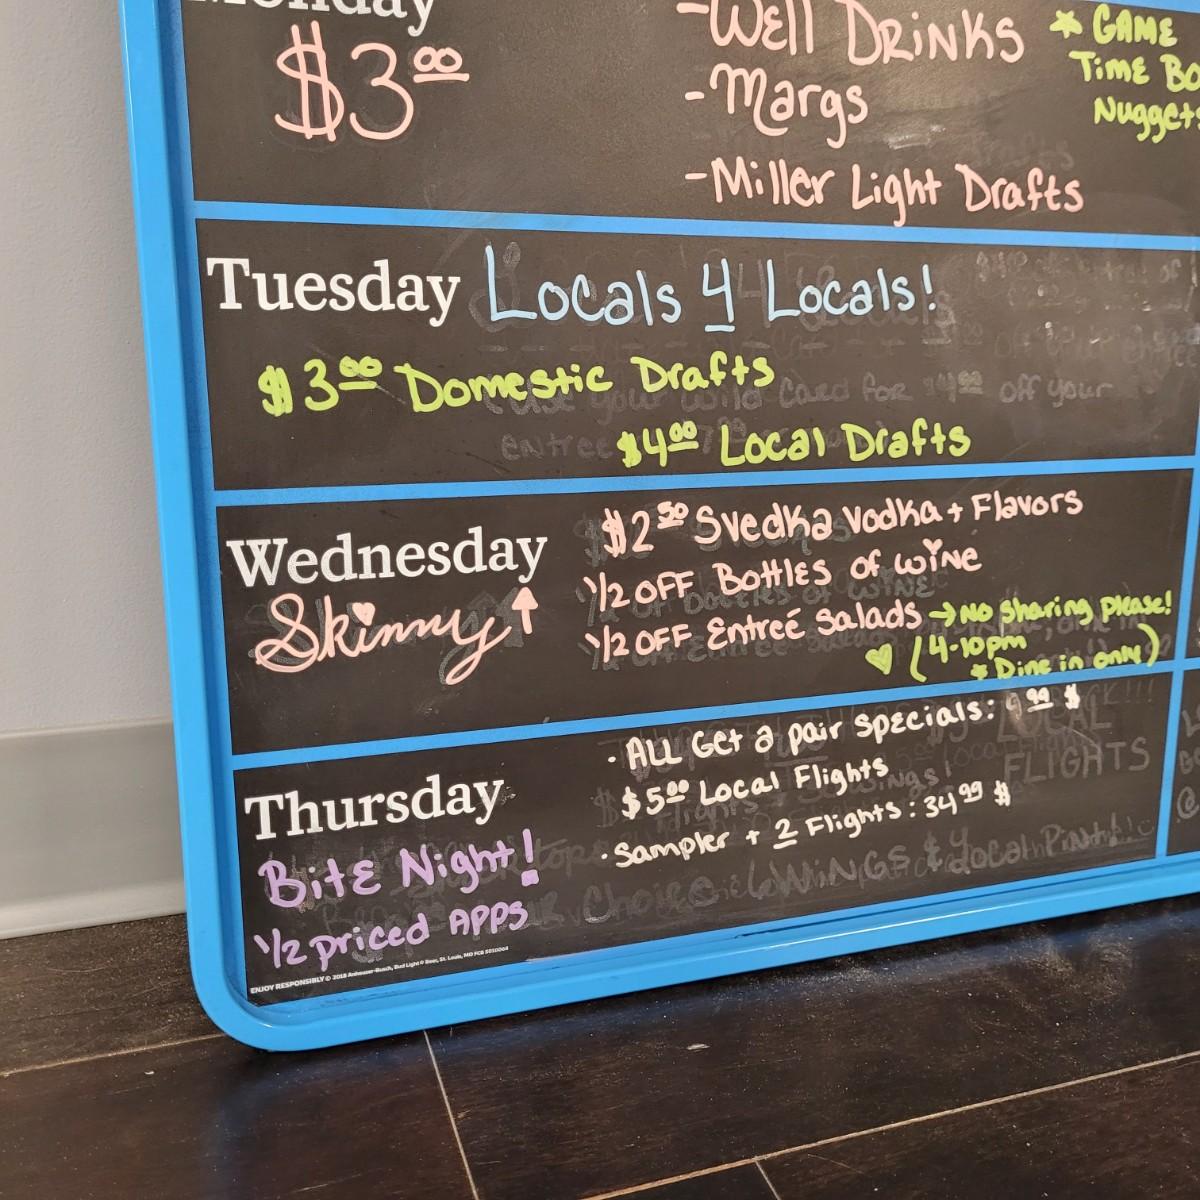 Monday
$3.00
-Well Drinks
-Margs
-Miller Light Drafts
* GAME
Time
Nuggets
Tuesday Locals 4 Locals!
$3.00 Domestic Drafts
$4.00 Local Drafts
Wednesday
Skinny
$2.50 Svedka Vodka + Flavors
1/2 OFF Bottles of wine
1/2 OFF Entreé Salads → No sharing please!
(4-10pm
* Dine in only)
Thursday
Bite Night!
1/2 priced APPS
· ALL Get a pair specials: 9.99 $
$5.00 Local Flights
· Sampler + 2 Flights: 34.99 $
ENJOY RESPONSIBLY © 2018 Anheuser-Busch, Bud Light® Beer, St. Louis, MO